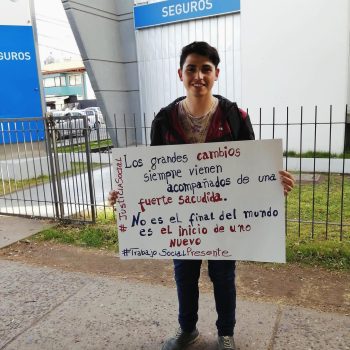 SEGUROS
SEGUROS
#JusticiaSocial
Los grandes cambios
siempre vienen
acompañados de una
fuerte sacudida.
No es el final del mundo
es el inicio de uno
nuevo
#TrabajoSocialPresente